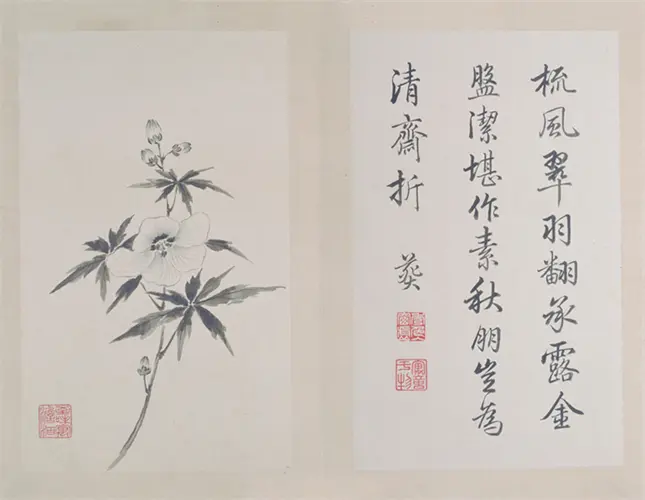 梳風翠羽翻承露金
盤潔堪作素秋朋豈為
清齋折
葵